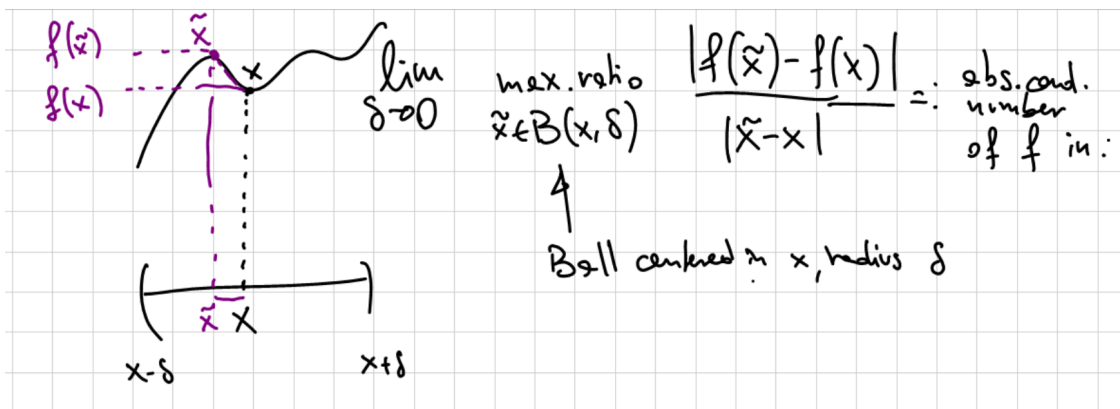 f(x̃)
x̃
x
f(x)
lim
δ→0
max. ratio
x̃∈B(x, δ)
|f(x̃) - f(x)|
|x̃ - x|
=: abs. cond.
number
of f in:
Ball centered in x, radius δ
x̃ x
x-δ
x+δ